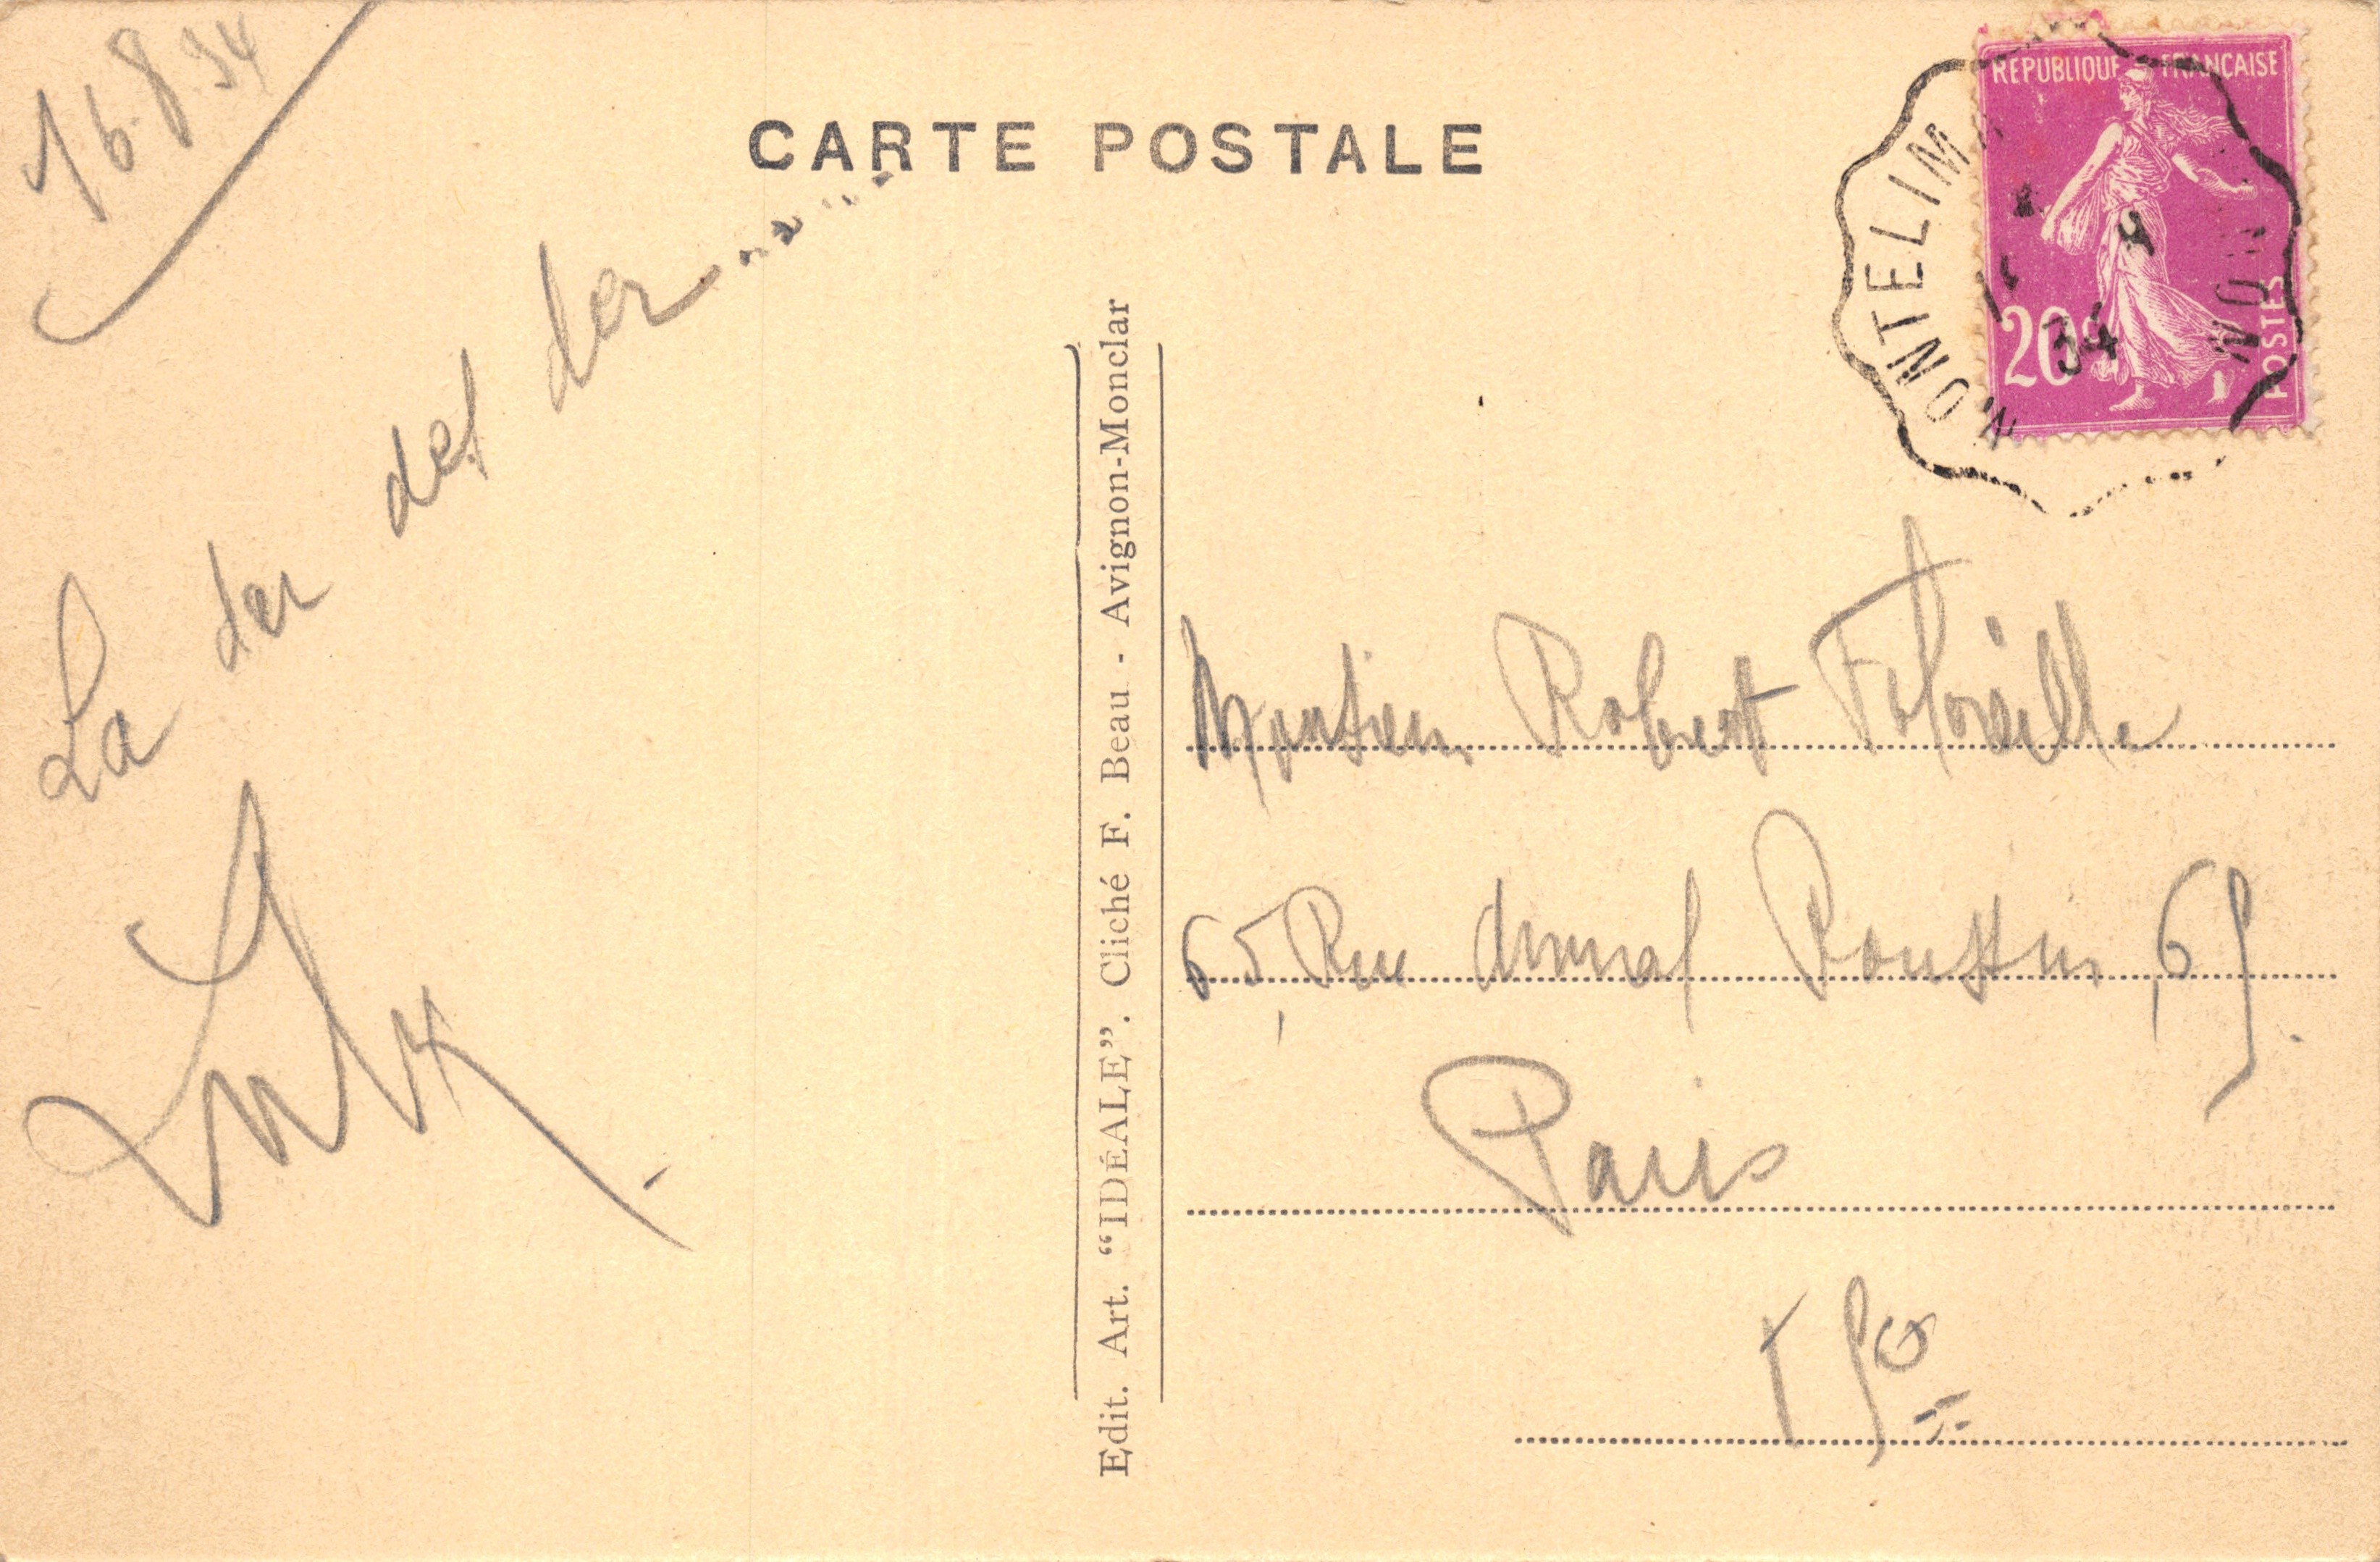 16.8.34
CARTE POSTALE
REPUBLIQUE FRANÇAISE
20c
POSTES
MONTELIM
34
La der des der.....
Edit. Art. “IDÉALE”. Cliché F. Beau - Avignon-Monclar
Monsieur Robert
65, Rue Amiral Roussin, 65.
Paris
15e